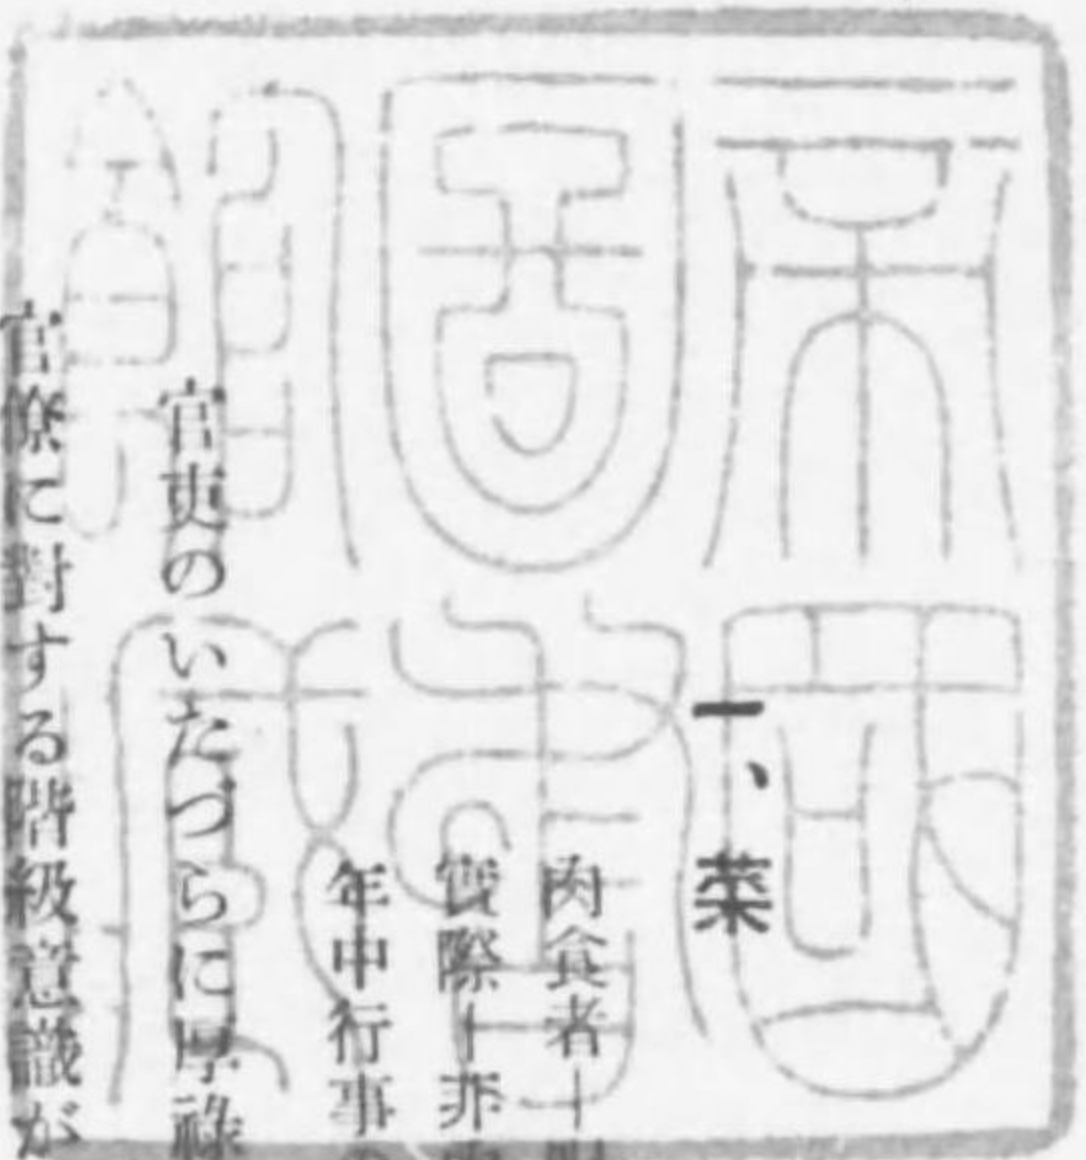 帝國
圖書
館藏
一、菜
肉食者―
實際―非
年中行事
官吏のいたづらに厚祿
官僚に對する階級意識が